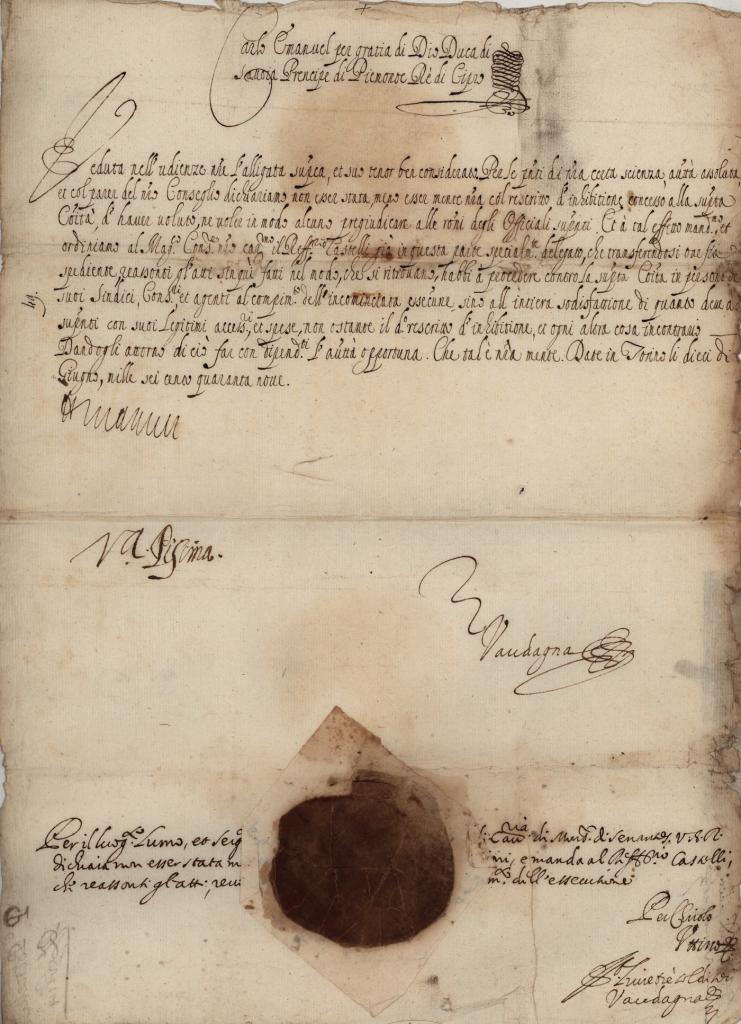 Carlo Emanuel per gratia di Dio Duca di
Savoia Prencipe di Piemonte Rè di Cipro
Veduta nell'udienze nra l'alligata supca, et suo tenor ben considerato. Per le pnti di nra certa scienza, autà assoluta,
et col parer del nro Conseglio dichiariamo, non esser stata, meno esser mente nra col rescritto d'inhibitione concesso alla supta
Coità, d'haver voluto, ne voler in modo alcuno pregiudicare alle roni degli Officiali supnti. Et à tal effetto mandmo, et
ordiniamo al Magco Consre nro il Refrio Castelli già in questa parte specialmte delegato, che transferendosi ove fia
spediente, reassonti gl'atti sin qui fatti nel modo, che si ritrovano, habbi à procedere contro la supta Coità in persone de
suoi Sindici, Consri et agenti al compimto dell'incominciata essecune, sino all'intiera sodisfattione di quanto deve a
supnti con suoi legitimi accessi, et spese, non ostante il do rescritto d'inhibitione, et ogni altra cosa in contrario
Dandogli attorno di ciò far con dipendti l'autà opportuna. Che tal è nra mente. Date in Torino li dieci di
Giugno, mille sei cento quaranta nove.
Va. Piscina.
Vaudagna
Per il luog. Sumo, et
dichiara non esser stata m
che reassonti gl'atti,
di Senan V. A. R.
ni, e manda al Reffrio Castelli,
mto dell'essecutione
Vaudagna